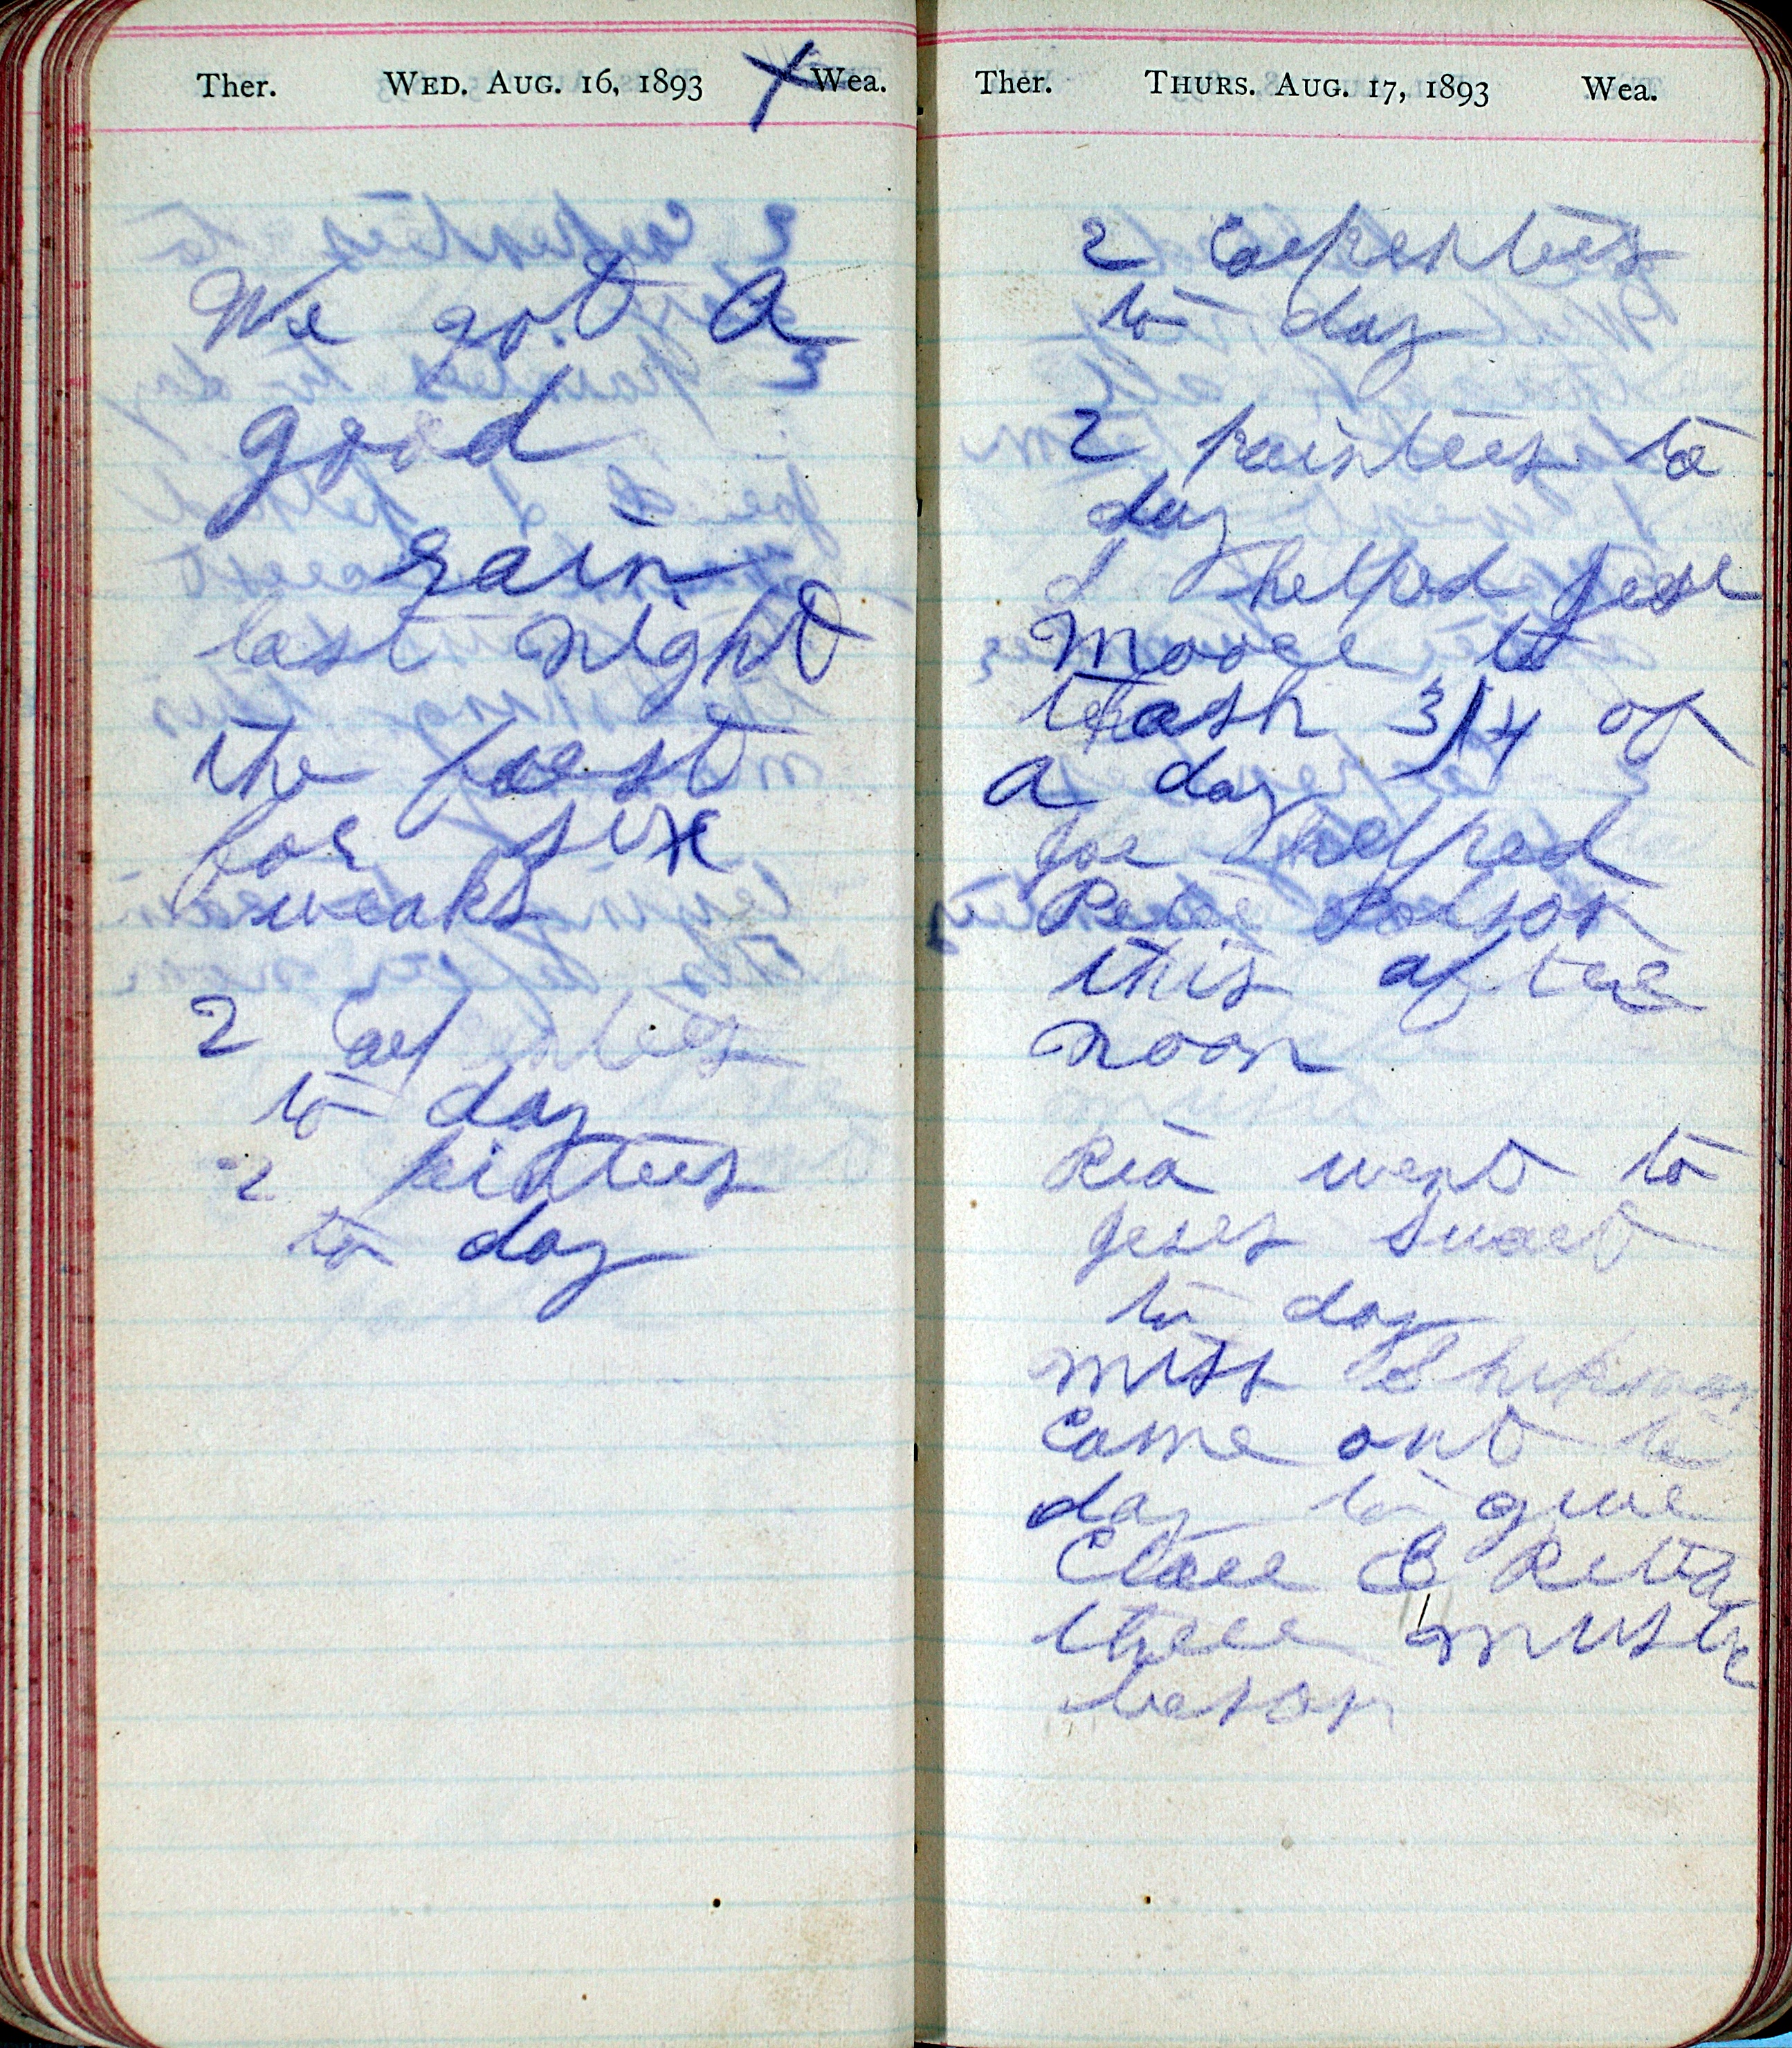 Ther. WED. AUG. 16, 1893 X Wea.
We got a
good
rain
last night
the first
for six
weaks
2 carpenters
to day
2 pinters
to day
Ther. THURS. AUG. 17, 1893 Wea.
2 Carpenters
to day
2 painters to
day
I helped Jese
Moore to
trash 3/4 of
a day
Joe helped
Peter Polson
this after
noon
Ria went to
Jeses Swart
to day
miss Shipman
Come out to
day to give
Clare & Retta
there music
leson